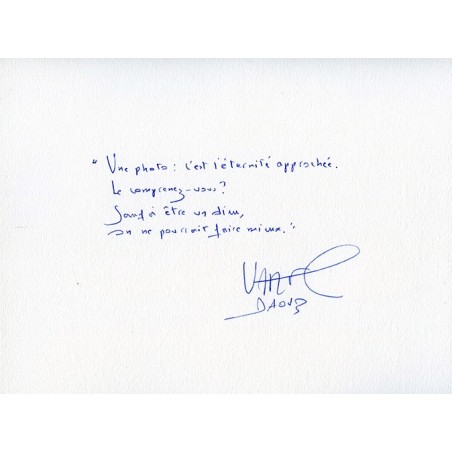 " Une photo : c'est l'éternité approchée.
Le comprenez-vous ?
Sauf à être un dieu,
on ne pourrait faire mieux. "